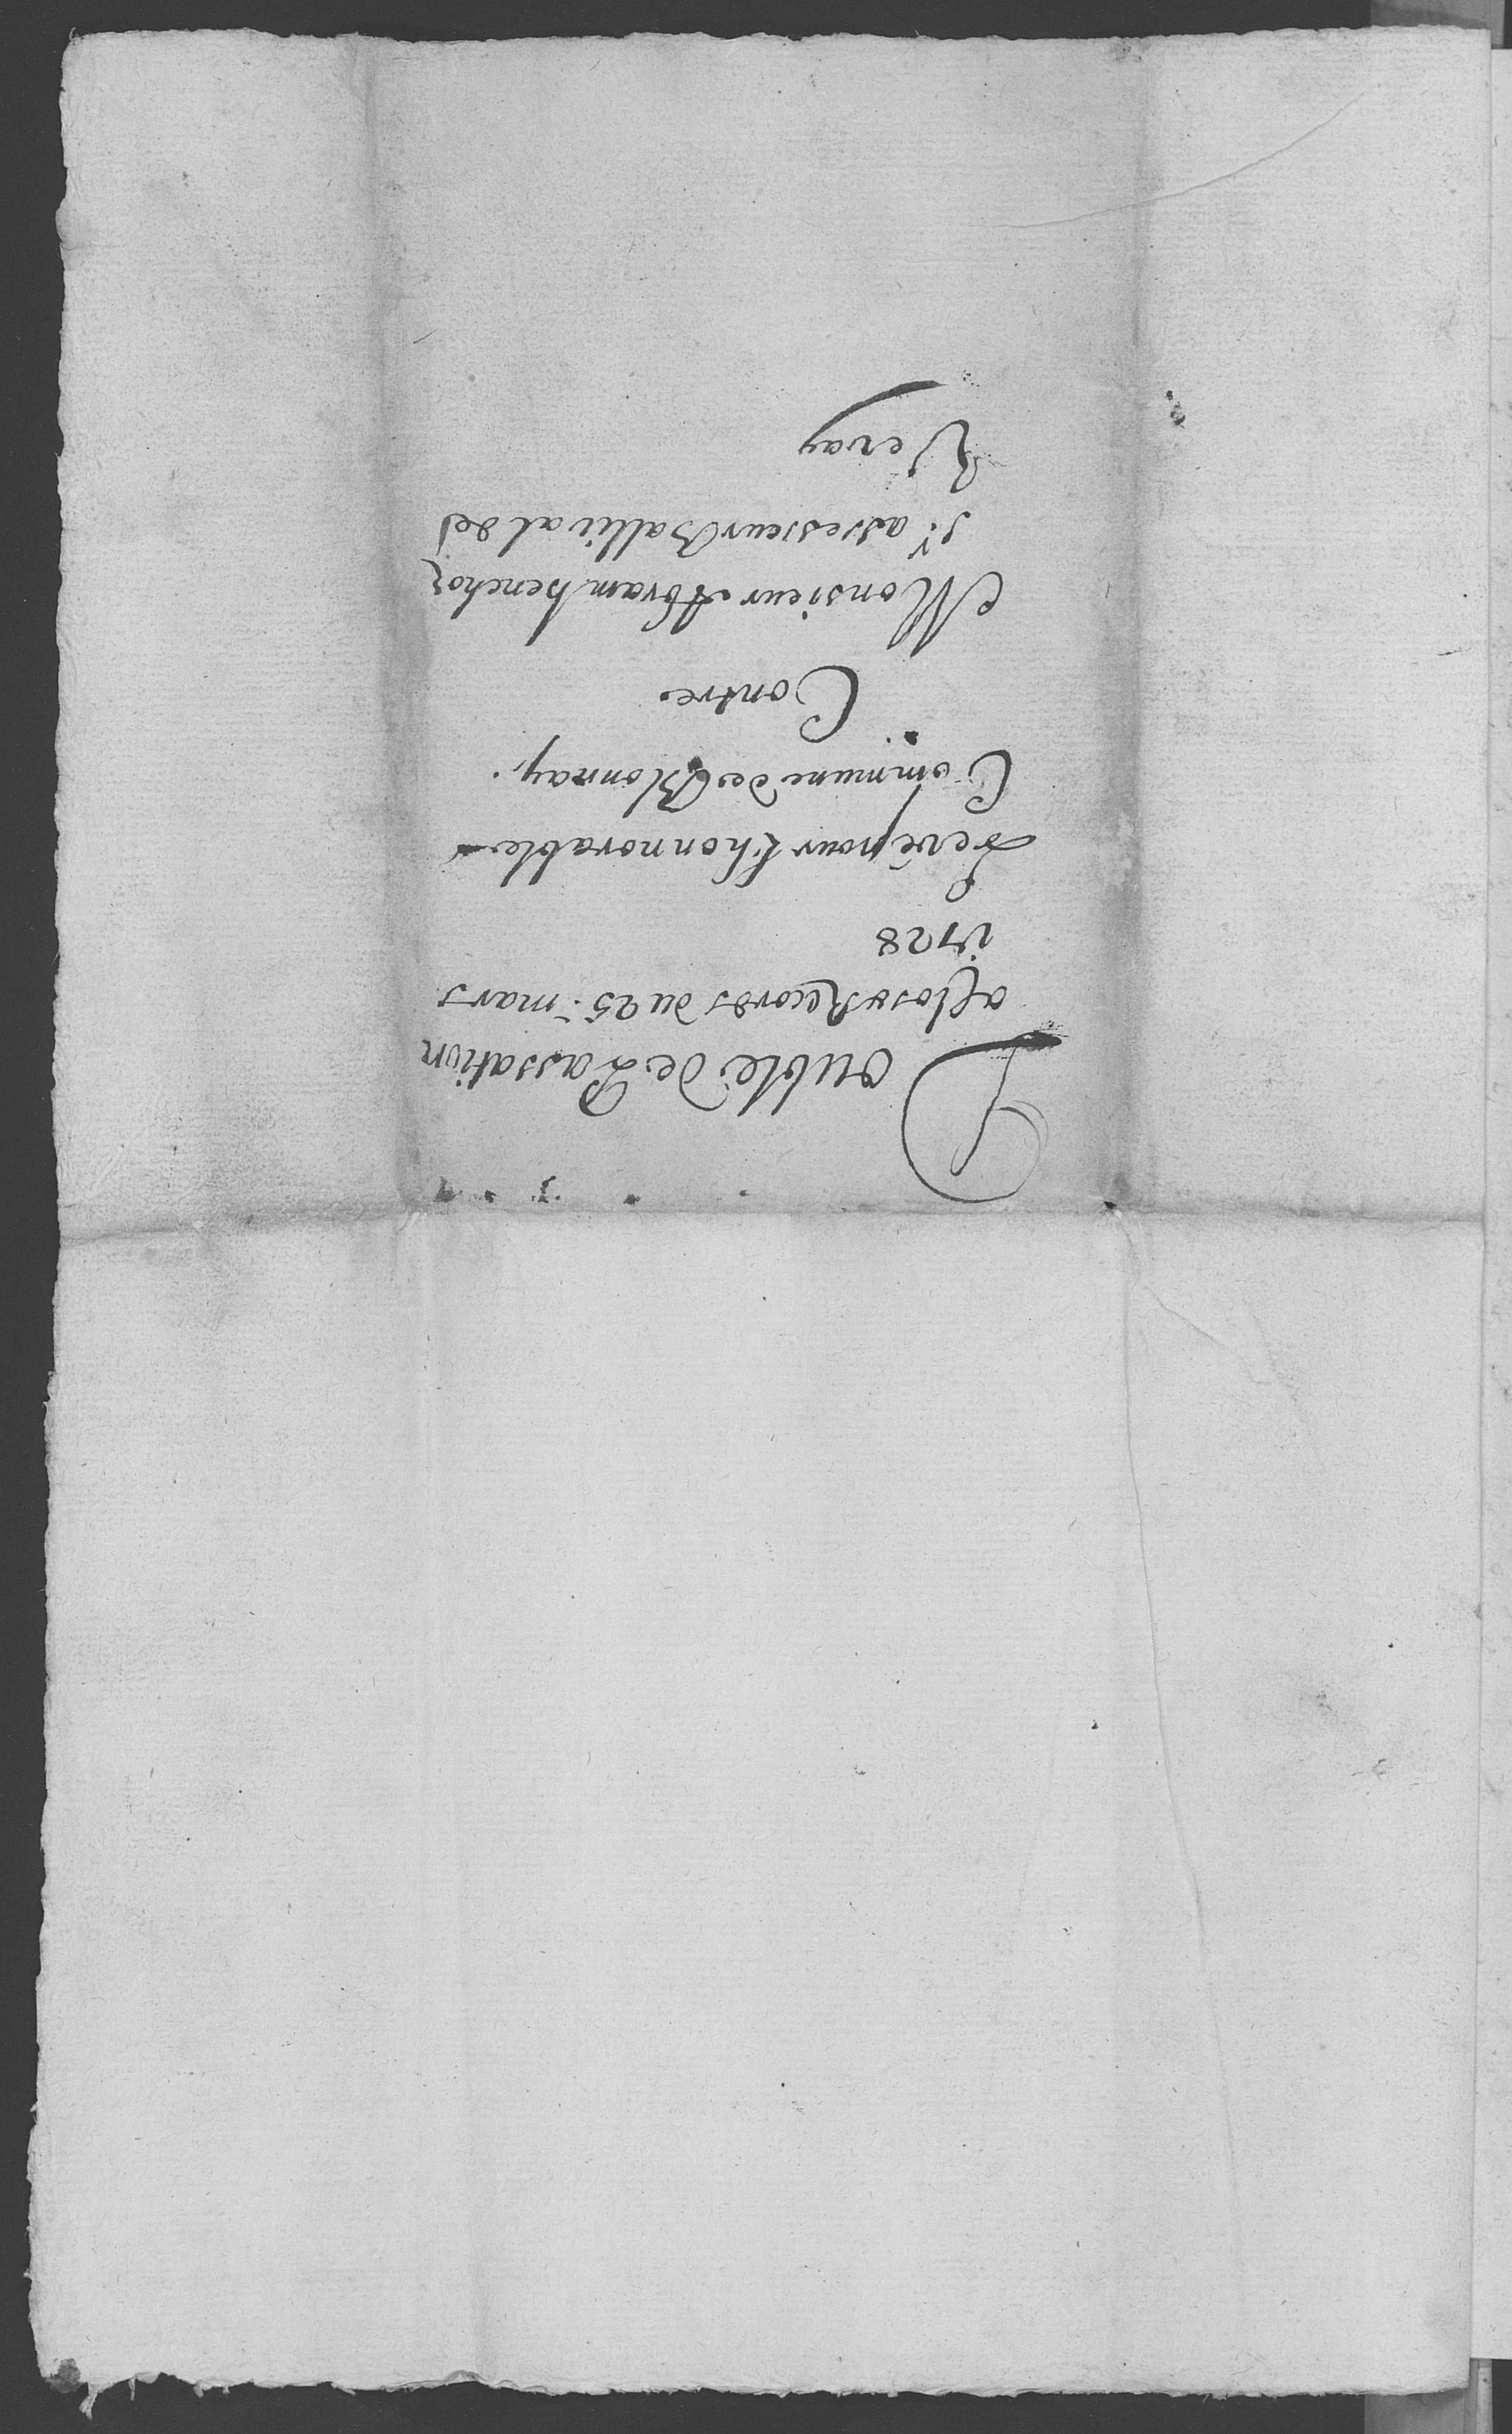 Double de Passation
a clos & Records du 25.e mars
1728
Levé pour L'honnorable
Commune de Blonnay.
Contre
Monsieur Abram henchoz
Sr. assesseur Ballival de
Vevay